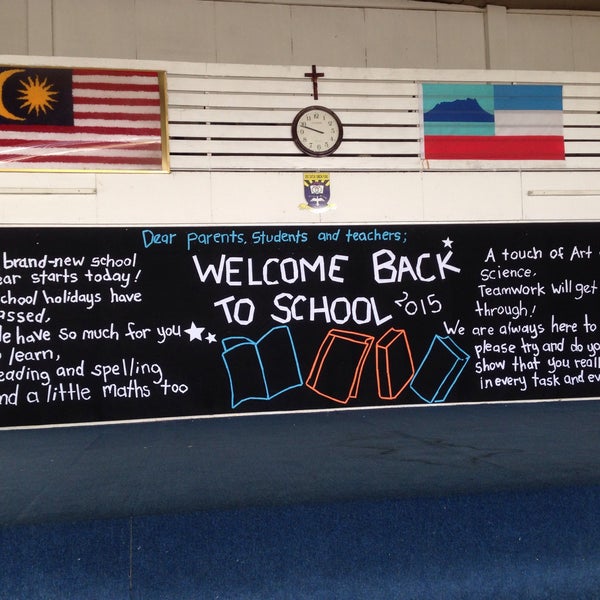 Dear parents, Students and teachers;
WELCOME BACK
TO SCHOOL 2015
brand-new school
ear starts today!
chool holidays have
assed,
e have so much for you
learn,
eading and spelling
nd a little maths too
A touch of Art
Science,
Teamwork will get
through!
We are always here to
please try and do yo
show that you reall
in every task and ev